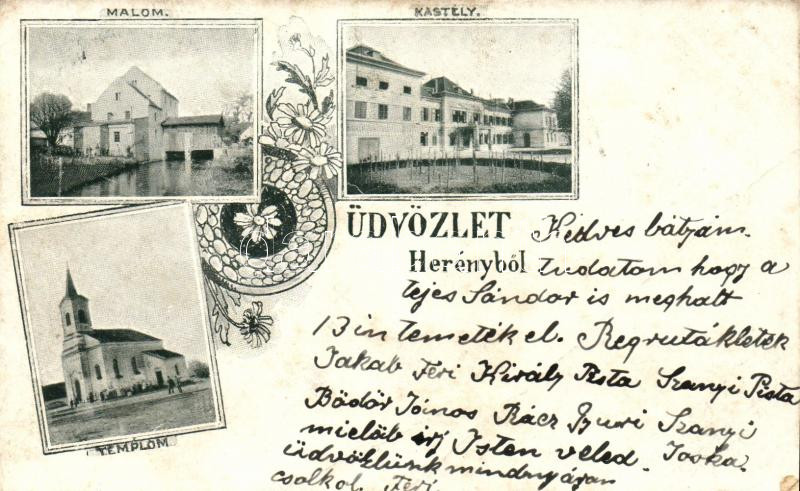 MALOM.
KASTÉLY.
ÜDVÖZLET
Herényből
TEMPLOM
Kedves bátyám.
tudatom hogy a
tejes Sándor is meghalt
13 in temeték el. Regrutákletek
Jakab Feri Király Pista Szanyi Pista
Bödör János Rácz Gyuri Szanyi
mielöb irj Isten veled. Joska
üdvözlünk mindnyájan
csolkol Feri